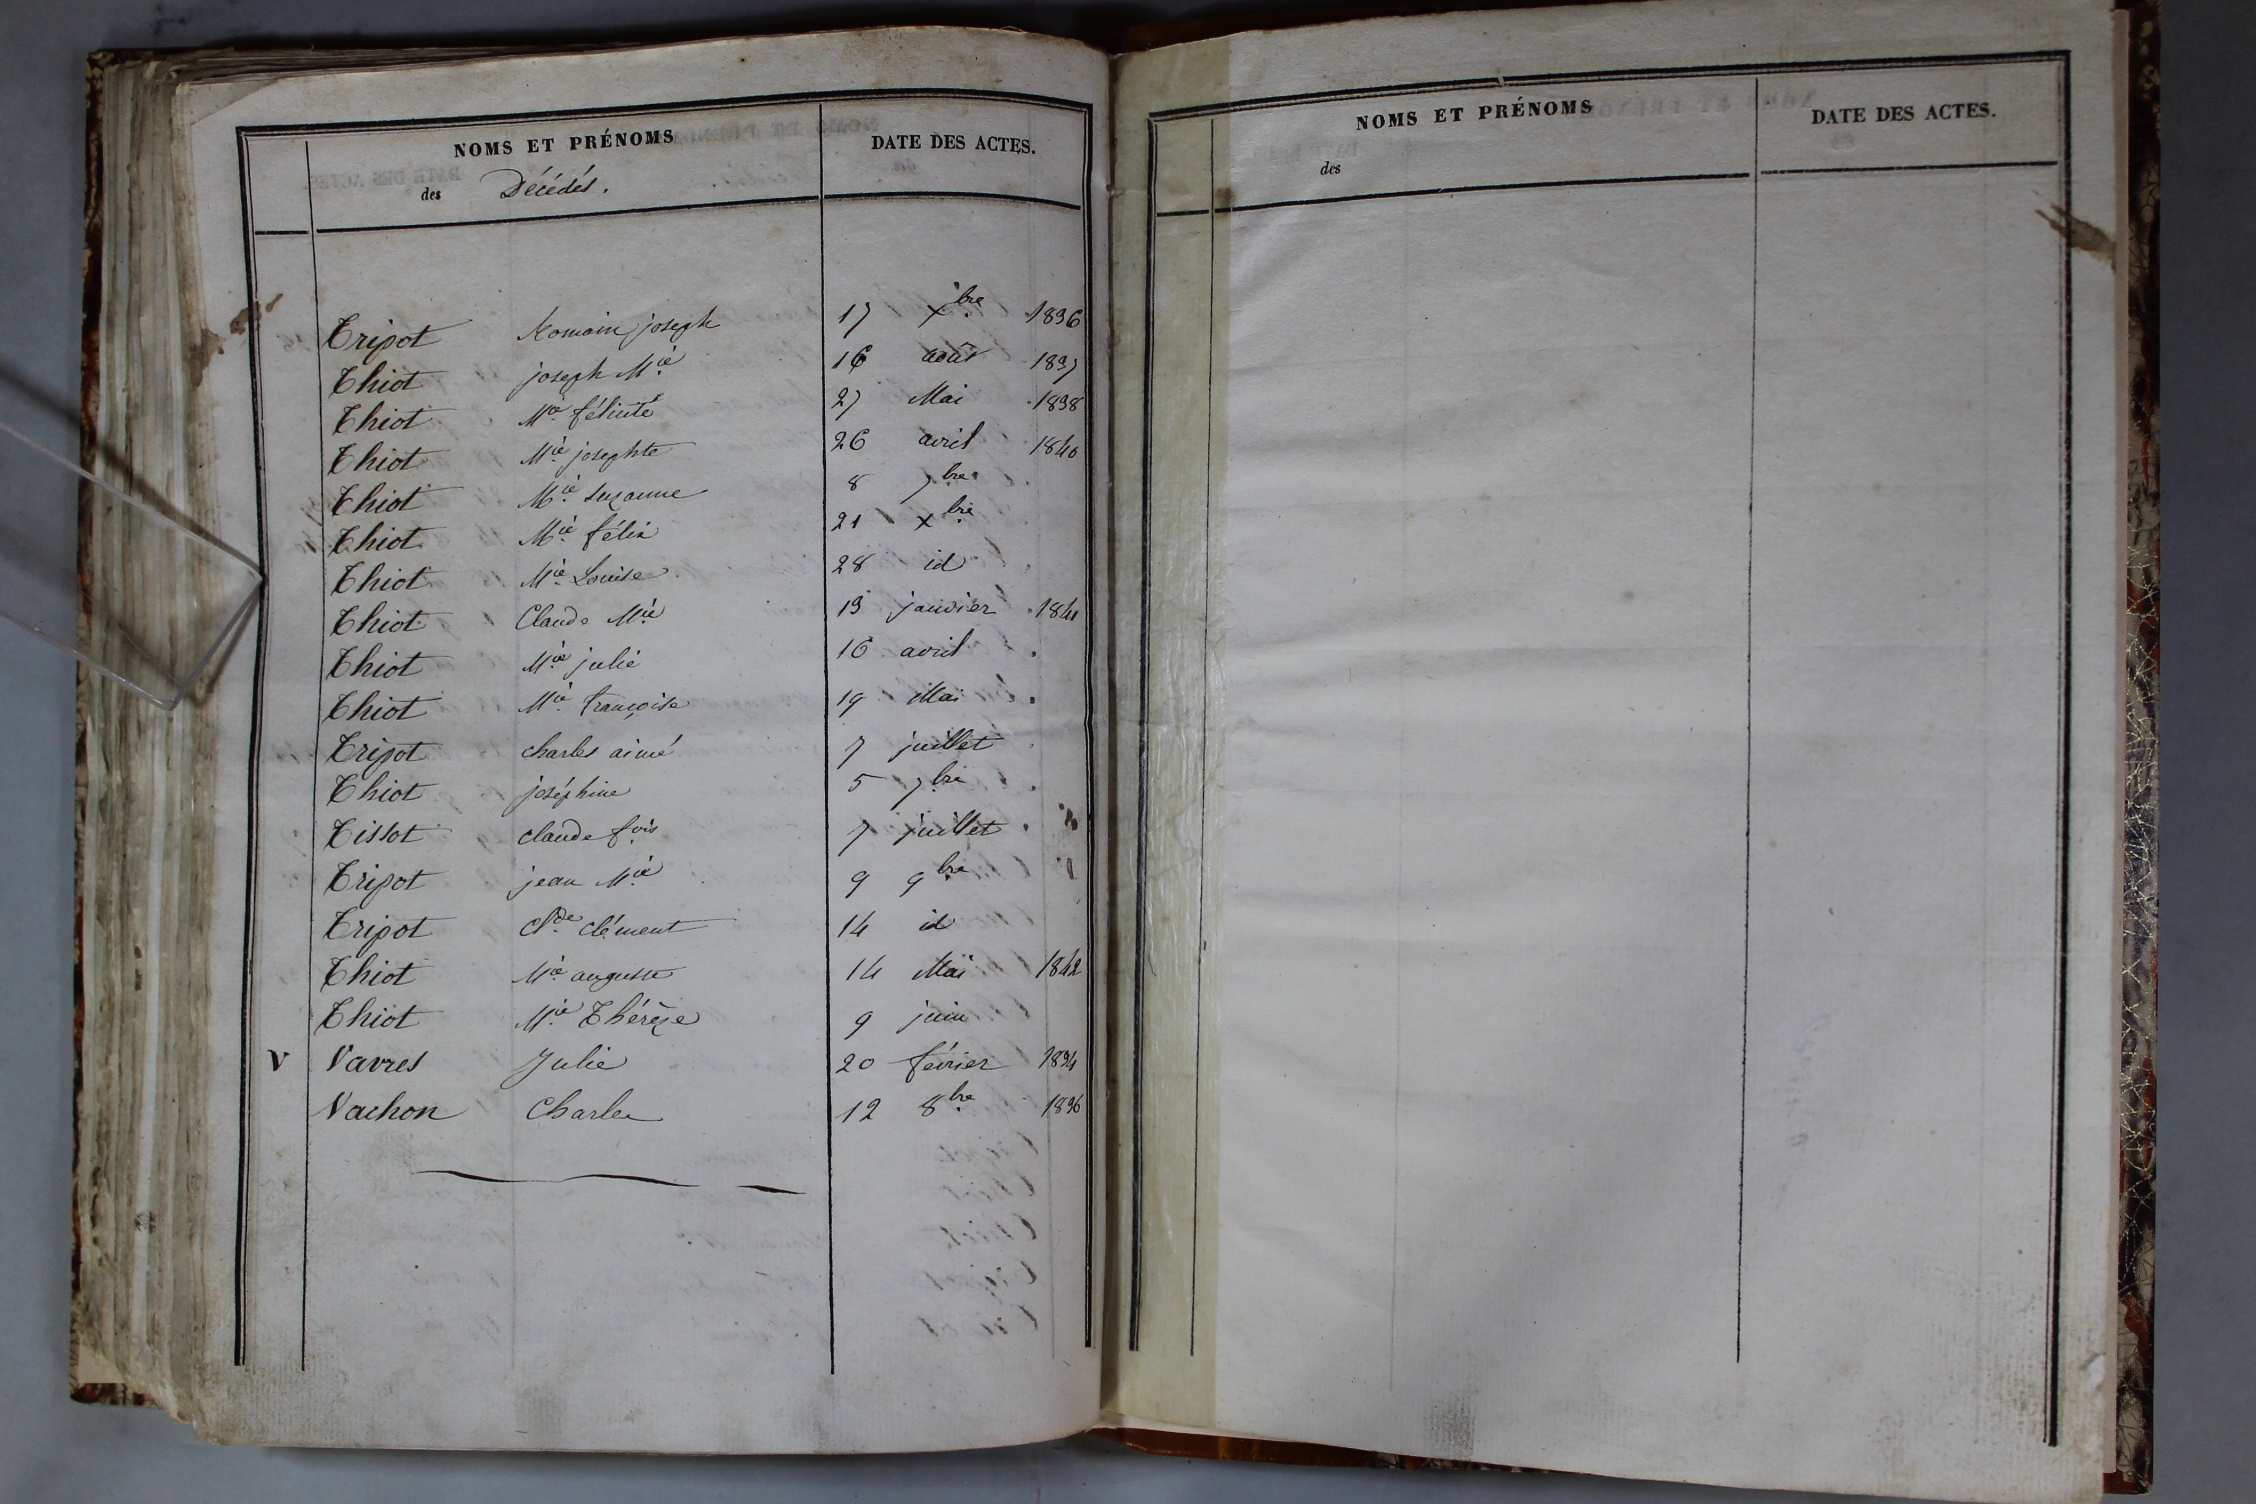 NOMS ET PRÉNOMS DATE DES ACTES.
des Décédés.
Tripot Romain joseph 17 xbre 1836
Thiot joseph Mie 16 août 1837
Thiot Mie félicité 27 Mai 1838
Thiot Mie josephte 26 avril 1840
Thiot Mie suzanne 8 7bre
Thiot Mie félix 21 xbre
Thiot Mie Louise 28 id
Thiot Claude Mie 13 janvier 1841
Thiot Mie julie 16 avril
Thiot Mie françoise 19 Mai
Tripot charles aimé 7 juillet
Thiot joséphine 5 7bre
Tissot claude fois 7 juillet
Tripot jean Mie 9 9bre
Tripot Clde clément 14 id
Thiot Mie auguste 14 Mai 1842
Thiot Mie Thérèze 9 juin
V Vavres Julie 20 février 1834
Vachon Charles 12 8bre 1836
NOMS ET PRÉNOMS DATE DES ACTES.
des